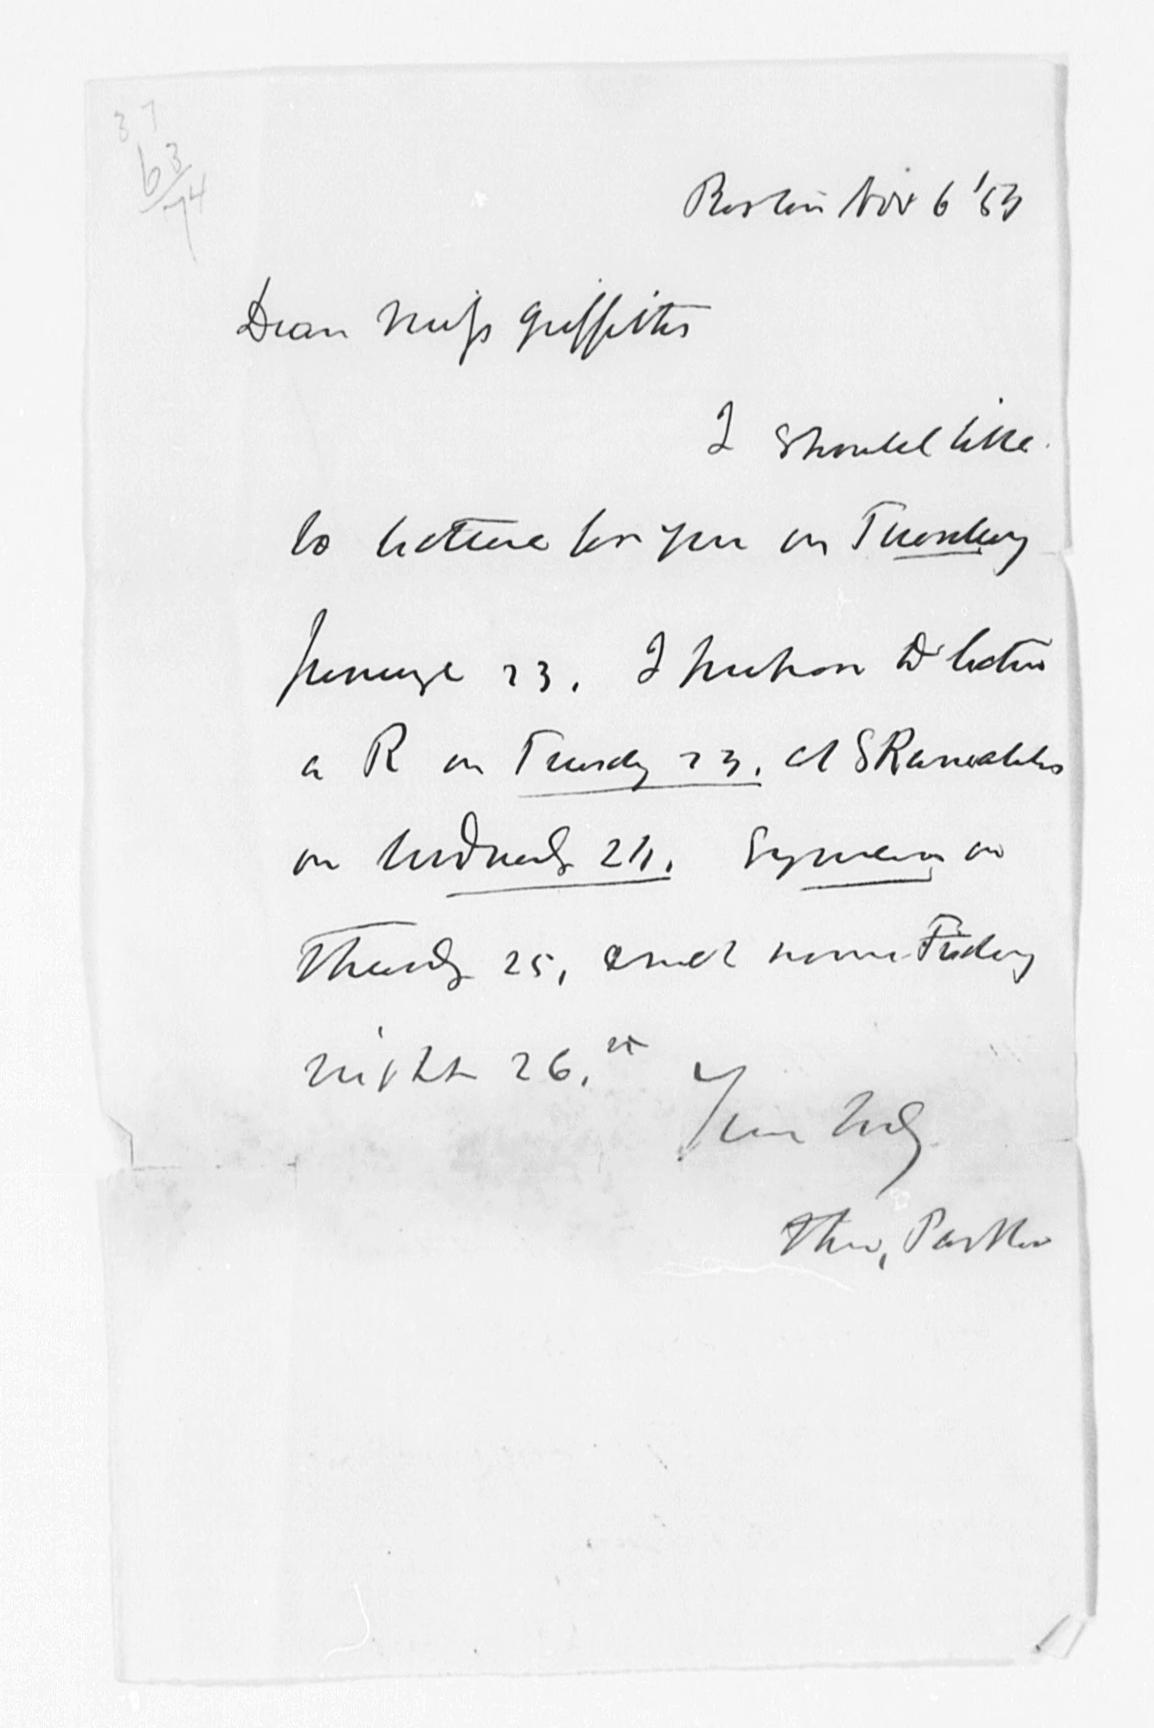 37
63/74
Boston Nov 6 '53
Dear Miss Griffiths
I should like
to lecture for you on Tuesday
23. I propose to lecture
a R on Tuesday 23. at Skaneateles
on Wednesdy 24. Syracuse on
Thursdy 25, and home Friday
night 26.
Yours truly
Theo, Parker